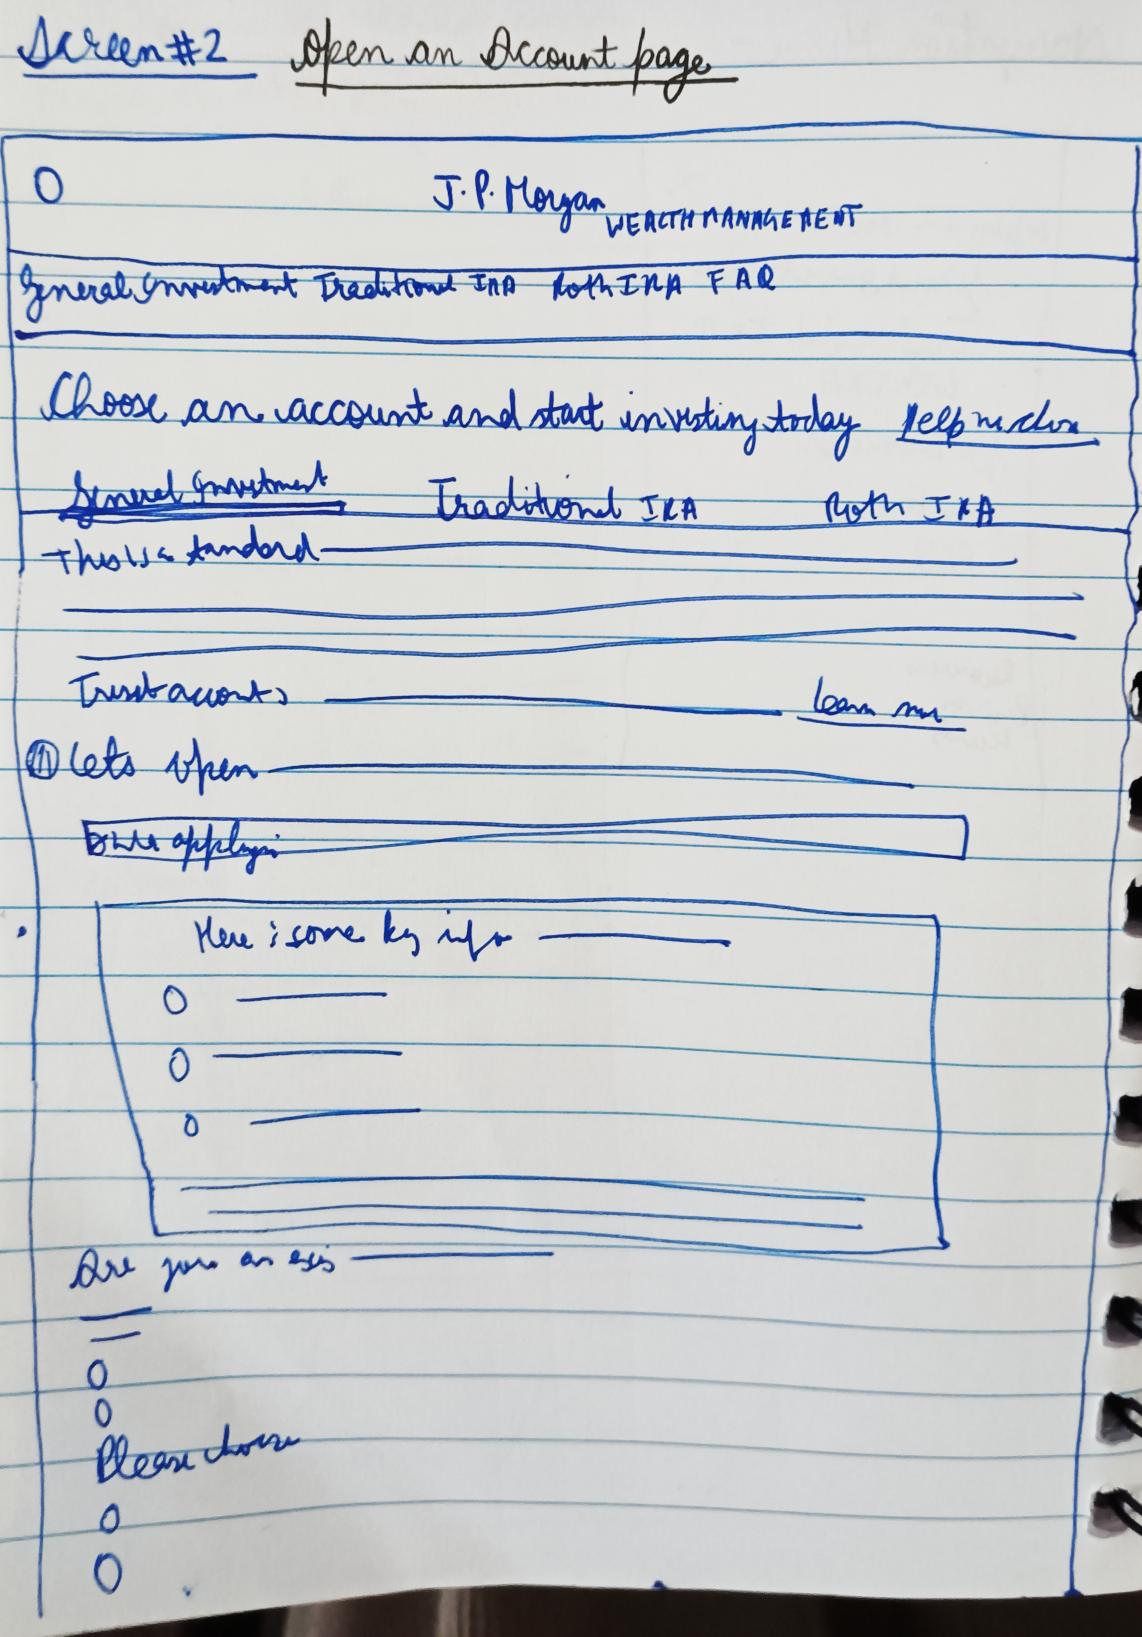 Screen#2 Open an Account page
J.P. Morgan WEALTH MANAGEMENT
General Investment Traditional IRA Roth IRA FAQ
Choose an account and start investing today
General Investment Traditional IRA Roth IRA
This is a standard
Trust accounts learn
Lets open
applyin
Here is some key info
Are you an exis
Please choose